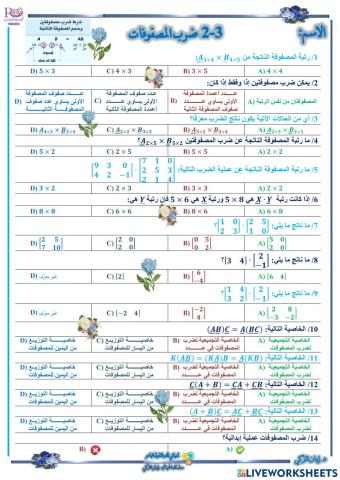 الاسم:
3-2 ضرب المصفوفات
شرط ضرب مصفوفتين وحجم المصفوفة الناتجة
1/ رتبة المصفوفة الناتجة من A₃ₓ₄ × B₄ₓ₅:
A) 4 × 4
B) 3 × 5
C) 4 × 3
D) 5 × 3
2/ يمكن ضرب مصفوفتين إذا وفقط إذا كان:
A) المصفوفتين من نفس الرتبة
B) عدد أعمدة المصفوفة الأولى يساوي عدد أعمدة المصفوفة الثانية
C) عدد صفوف المصفوفة الأولى يساوي عدد أعمدة الثانية
D) عدد صفوف المصفوفة الأولى يساوي عدد صفوف المصفوفة الثانية
3/ أي من الحالات الآتية يكون ناتج الضرب معرّفا؟
4/ ما رتبة المصفوفة الناتجة عن ضرب المصفوفتين A₂ₓ₅ × B₅ₓ₂؟
A) 2 × 2
B) 5 × 5
C) 2 × 5
D) 5 × 2
5/ ما رتبة المصفوفة الناتجة عن عملية الضرب التالية:
[9 3 0
4 2 −1] · [7 1 0
2 5 3
2 1 4]
A) 2 × 2
B) 3 × 3
C) 2 × 3
D) 3 × 2
6/ إذا كانت رتبة X · Y هي 5 × 8 ورتبة X هي 6 × 5 فإن رتبة Y هي:
A) 6 × 8
B) 8 × 6
C) 6 × 6
D) 8 × 8
7/ ما ناتج ما يلي: [1 0
2 3] · [2 5
0 1]؟
A) [5 0
2 0]
B) [0 5
0 2]
C) [2 0
0 2]
D) [2 5
7 10]
8/ ما ناتج ما يلي: [3 4] · [2
−1]؟
A) [6 4]
B) [6
−4]
C) [2]
D) غير معرّف
9/ ما ناتج ما يلي: [1 4
3 2] · [2
−1]؟
A) [2
−3 −8]
B) [−2
4]
C) [−2 4]
D) غير معرّف
10/ الخاصية التالية: (AB)C = A(BC)
A) الخاصية التجميعية لضرب المصفوفات
B) الخاصية التجميعية لضرب المصفوفات في عدد
C) خاصية التوزيع من اليسار للمصفوفات
D) خاصية التوزيع من اليمين للمصفوفات
11/ الخاصية التالية: K(AB) = (KA)B = A(KB)
A) الخاصية التجميعية لضرب المصفوفات
B) الخاصية التجميعية لضرب المصفوفات في عدد
C) خاصية التوزيع من اليسار للمصفوفات
D) خاصية التوزيع من اليمين للمصفوفات
12/ الخاصية التالية: C(A + B) = CA + CB
A) الخاصية التجميعية لضرب المصفوفات
B) الخاصية التجميعية لضرب المصفوفات في عدد
C) خاصية التوزيع من اليسار للمصفوفات
D) خاصية التوزيع من اليمين للمصفوفات
13/ الخاصية التالية: (A + B)C = AC + BC
A) الخاصية التجميعية لضرب المصفوفات
B) الخاصية التجميعية لضرب المصفوفات في عدد
C) خاصية التوزيع من اليسار للمصفوفات
D) خاصية التوزيع من اليمين للمصفوفات
14/ ضرب المصفوفات عملية إبدالية؟
A)
B)
LIVEWORKSHEETS